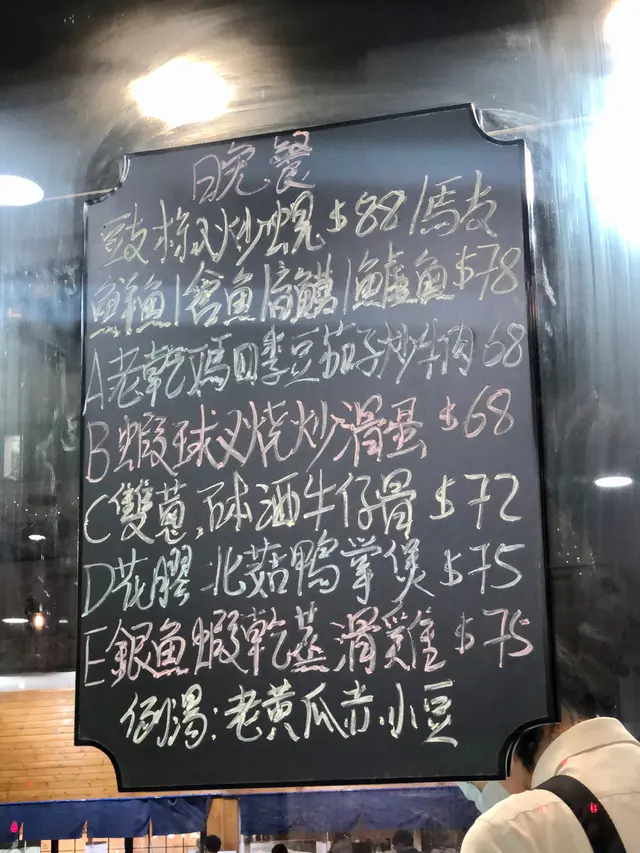 晚餐
豉椒炒蜆$88/馬友
鮮魚/倉魚/𩶘鱲/鱸魚$78
A老乾媽四季豆茄子炒牛肉68
B蝦球叉燒炒滑蛋$68
C雙蔥砵酒牛仔骨$72
D花膠北菇鴨掌煲$75
E銀魚蝦乾蒸滑雞$75
例湯:老黃瓜赤小豆